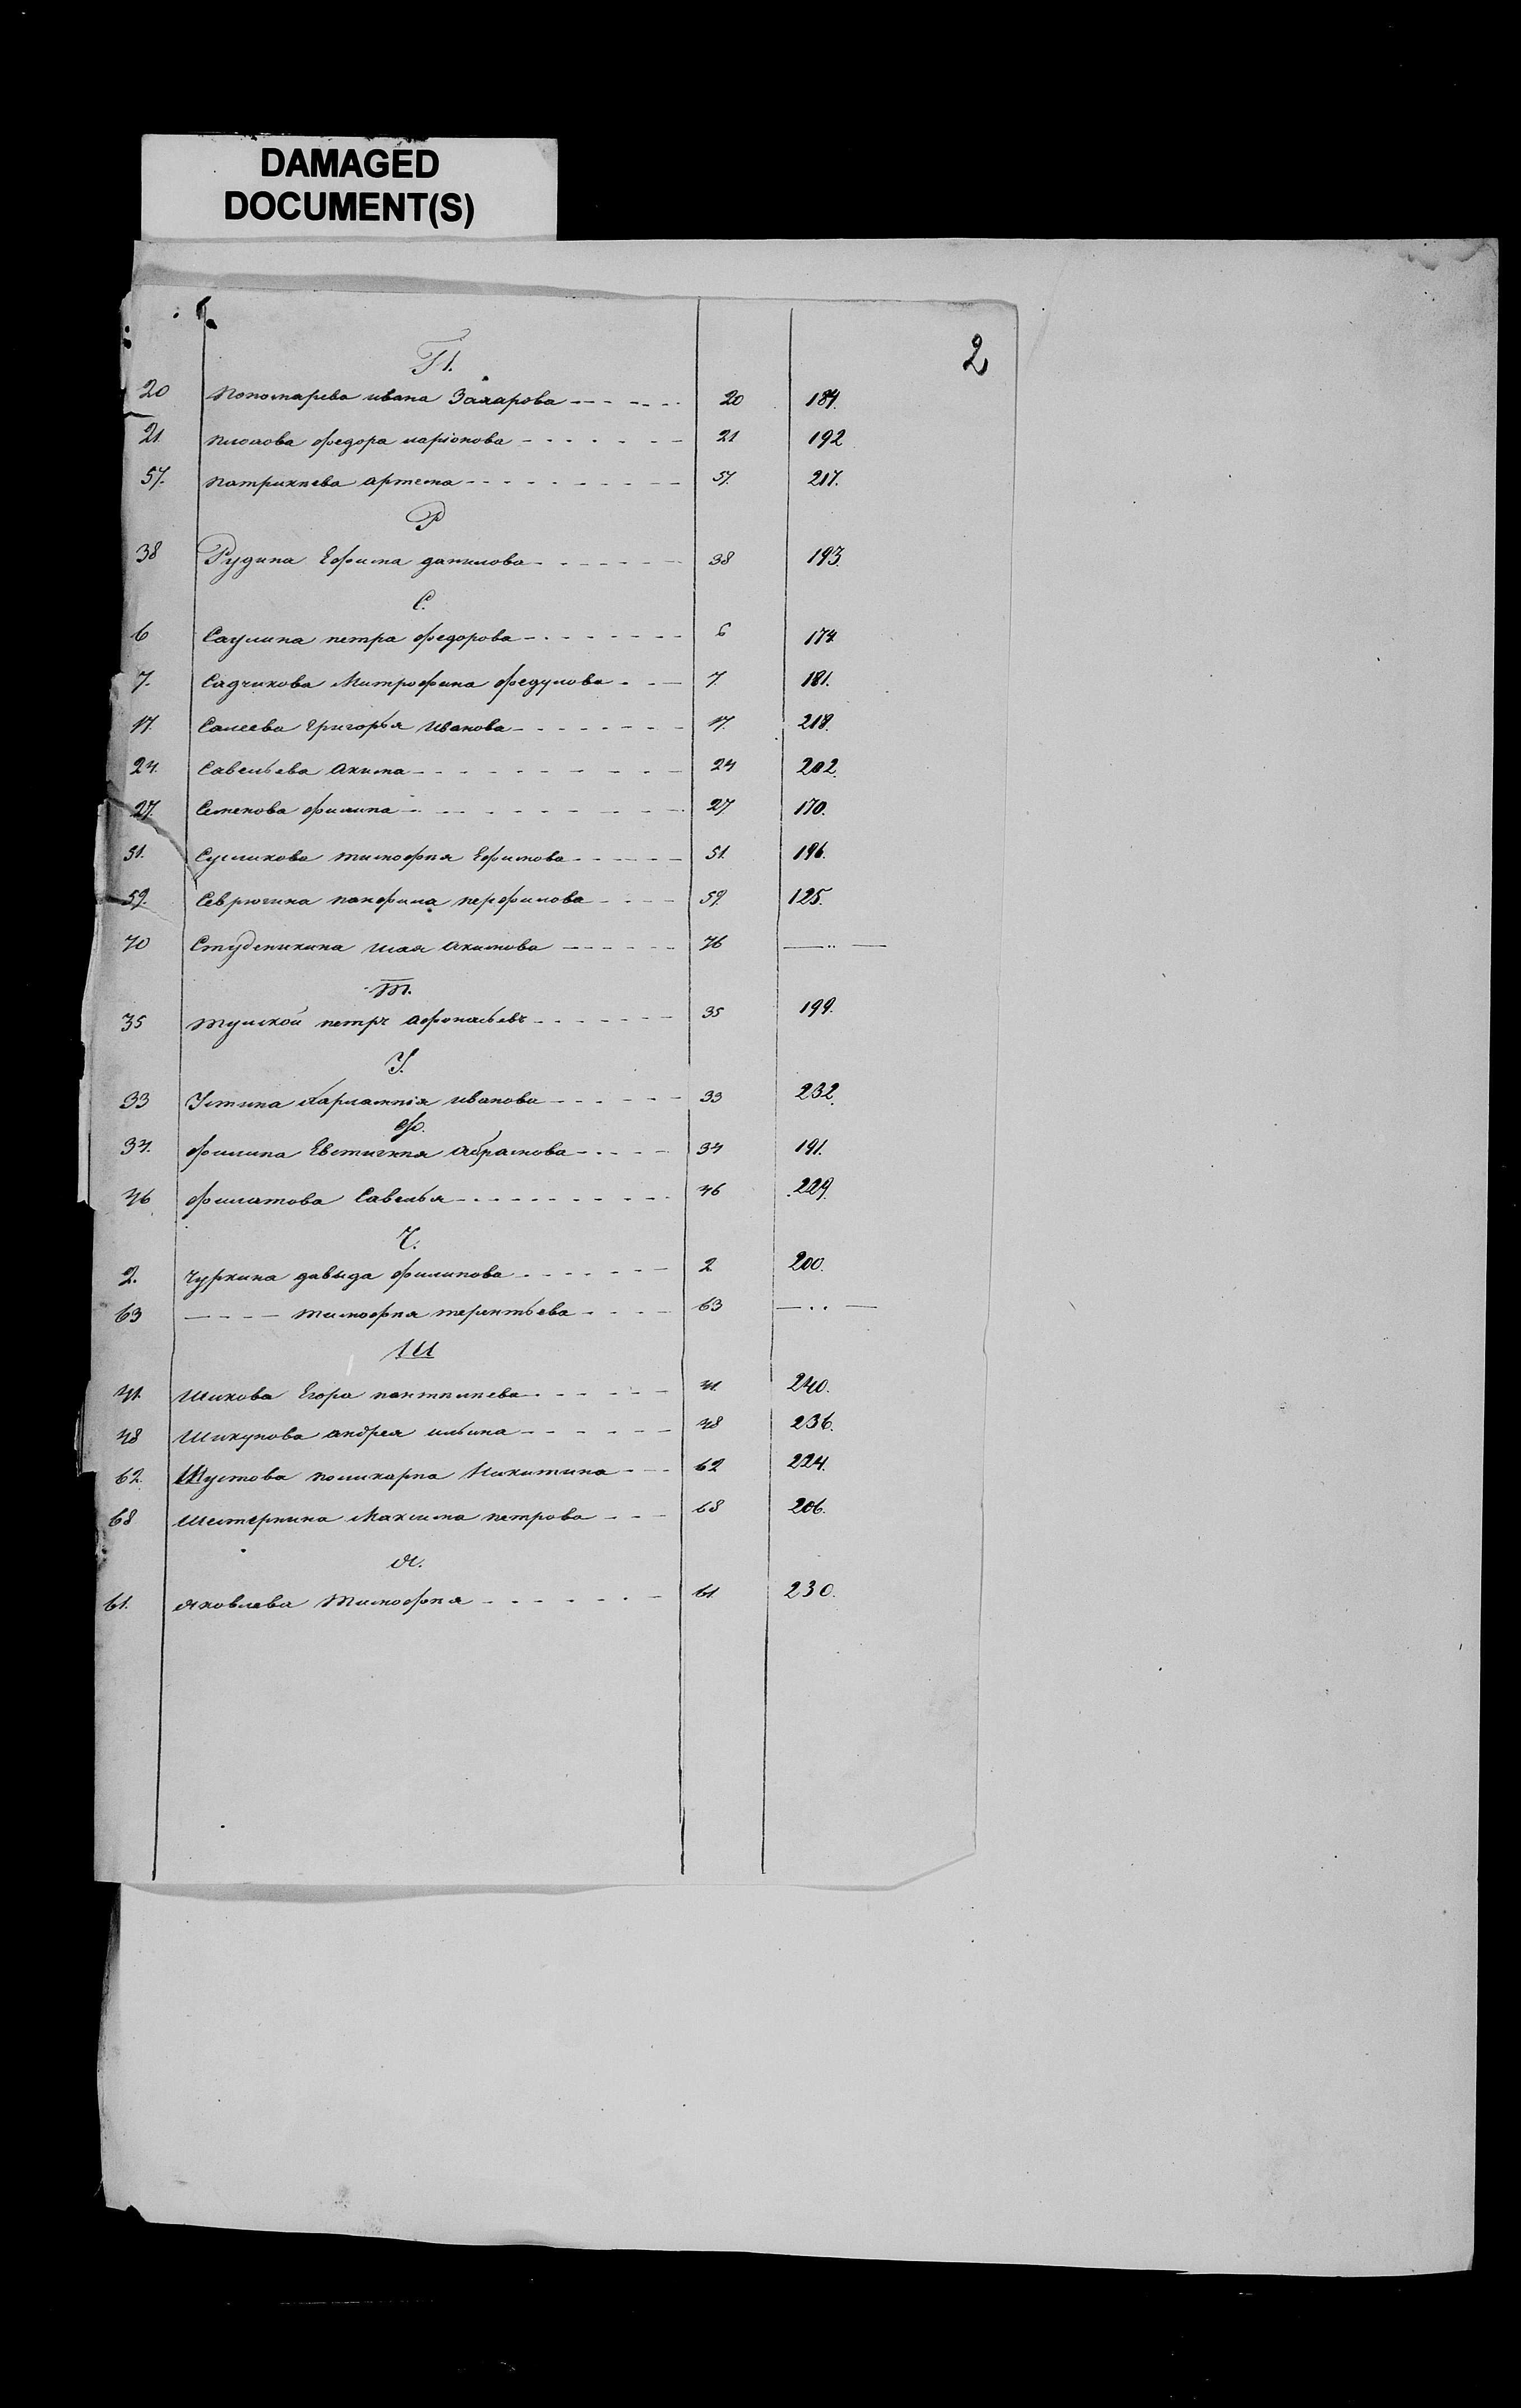 DAMAGED
DOCUMENT(S)
2
П.
20 Пономарева ивана Захарова 20 184.
21. федора ларіонова 21 192
57. Патрикѣева Артема 57. 217.
Р
38 Рудина Ефима данилова 38 193.
С.
6 Саулина петра федорова 6 174.
7. Садчикова Митрофана федулова 7. 181.
17. Салеева Григорья Иванова 17. 218.
24. Савельева Акима 24 202.
27. Семенова филипа 27. 170.
51. Сусликова тимофѣя Ефимова 51. 196.
59. Севрюгина панфила перфилова 59. 125.
Студеникина Акимова
Т.
35 тульской петръ Афонасьевъ 35 199.
У.
33 Устина харлампія иванова 33 232.
Ф.
34. филина Евтигнѣя Абрамова 34 191.
46 филатова Савелья 46 229.
Ч.
2. Чуркина давыда филипова 2 200.
63 тимофѣя терентьева 63
Ш
41. Шикова Егора пантилѣева 41. 240.
48 Шикунова андрея ильина 48 236.
62. Шустова поликарпа Никитина 62 224.
68 Шестернина Максима петрова 68 206.
Я.
61. Яковлева Тимофѣя 61. 230.